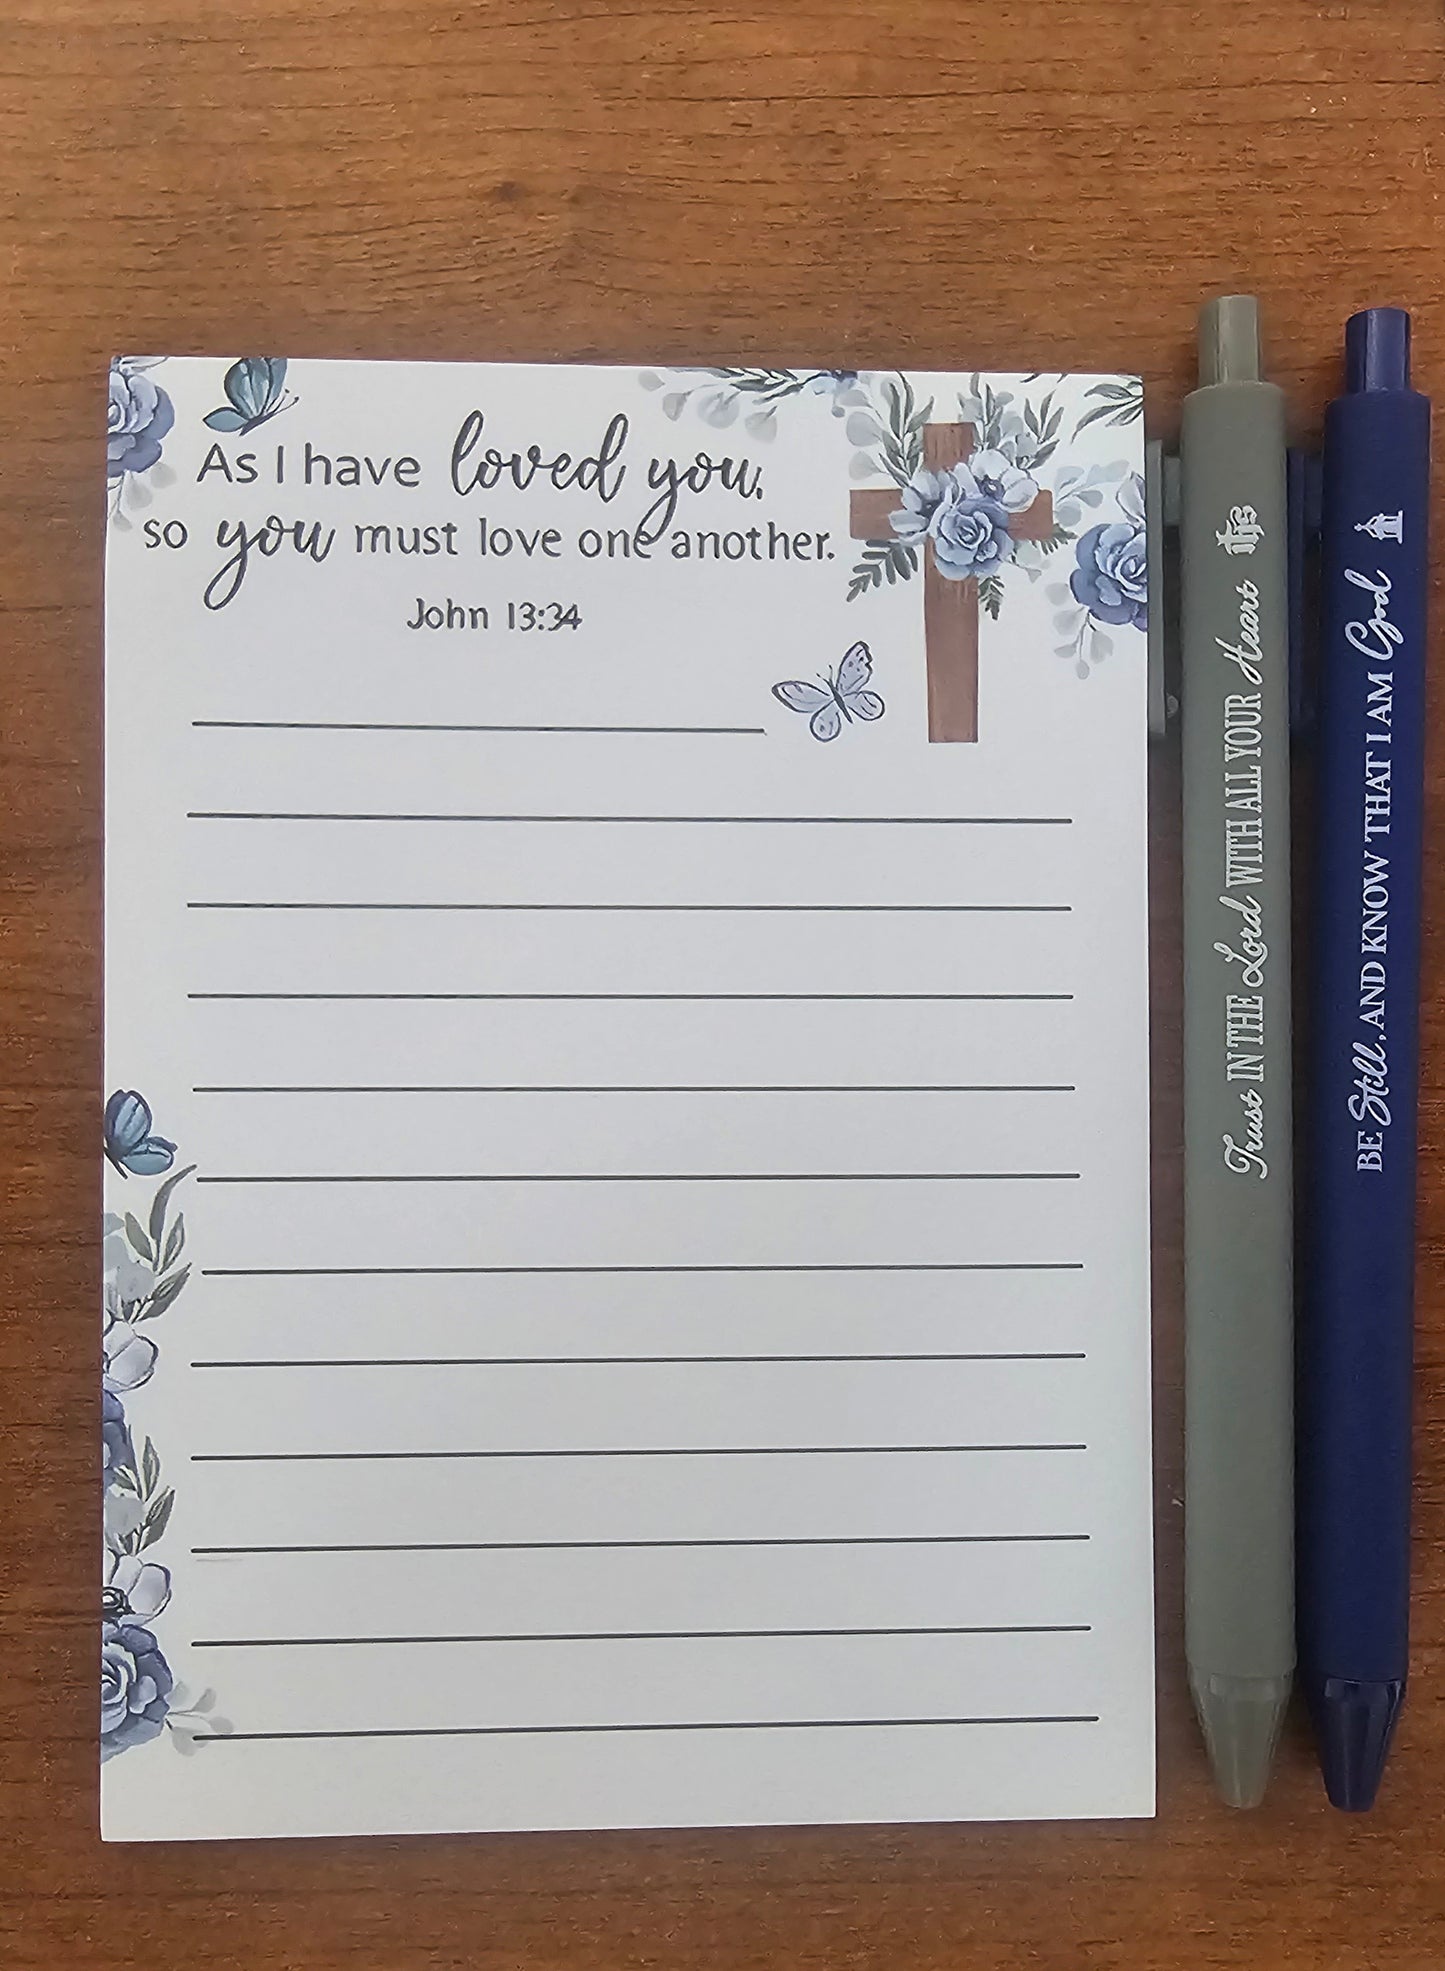 As I have loved you,
so you must love one another.
John 13:34
Trust IN THE Lord WITH ALL YOUR Heart
BE Still, AND KNOW THAT I AM God